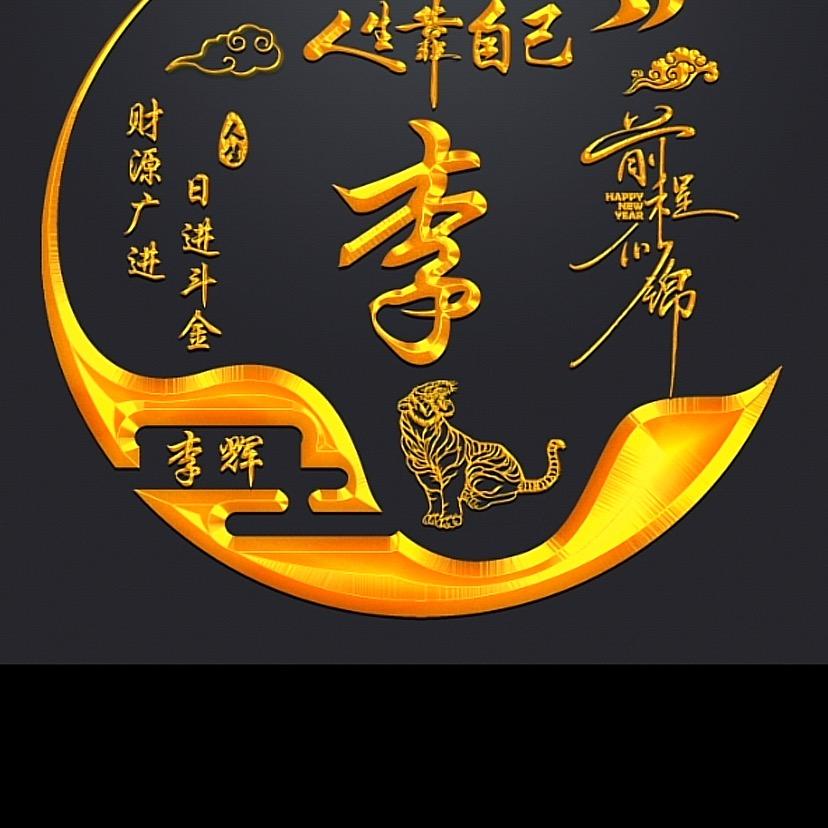 人生靠自己
财源广进
人生
日进斗金
李
前程似锦
HAPPY
NEW
YEAR
李辉